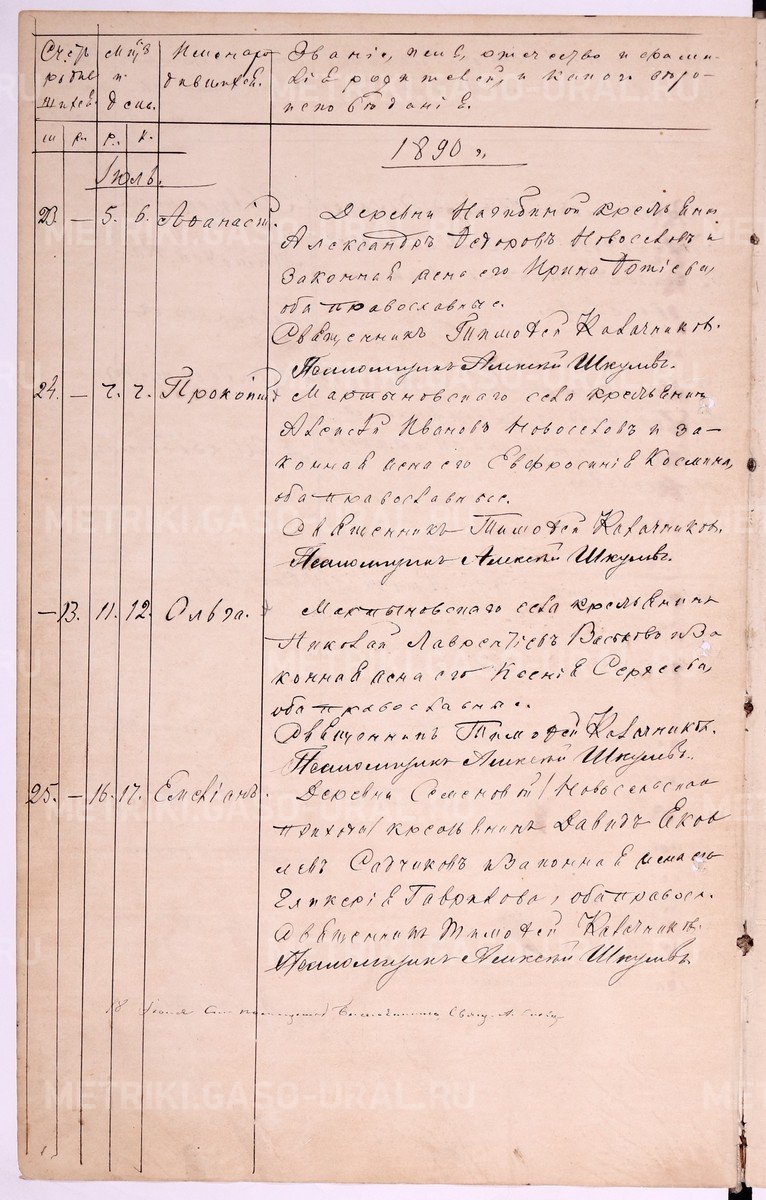 Счетъ родившихся.
Мѣс. и день.
Имена родившихся.
Званіе, имя, отчество и фамилія родителей, и какого вѣроисповѣданія.
м. ж. р. к.
1890 г.
Іюль.
23. — 5. 6. Аѳанасій.
Деревни Нагибиной крестьянинъ
Александръ Ѳедоровъ Новоселовъ и
законная жена его Ирина Ѳотіева,
оба православные.
Священникъ Тимоѳей Калачниковъ.
Псаломщикъ Алексѣй Шкулевъ.
24. — 7. 7. Прокопій
Мартыновскаго села крестьянинъ
Алексѣй Ивановъ Новоселовъ и за-
конная жена его Евфросинія Космина,
оба православные.
Священникъ Тимоѳей Калачниковъ.
Псаломщикъ Алексѣй Шкулевъ.
— 13. 11. 12. Ольга.
Мартыновскаго села крестьянинъ
Николай Лаврентіевъ Васьковъ и за-
конная жена его Ксенія Сергеева,
оба православные.
Священникъ Тимоѳей Калачниковъ.
Псаломщикъ Алексѣй Шкулевъ.
25. — 16. 17. Емеліанъ.
Деревни Семеновой /Новосельскаго
прихода/ крестьянинъ Давидъ Яков-
левъ Садчиковъ и законная жена его
Гликерія Гаврилова, оба правосл.
Священникъ Тимоѳей Калачниковъ.
Псаломщикъ Алексѣй Шкулевъ.
18
METRIKI.GASO-URAL.RU